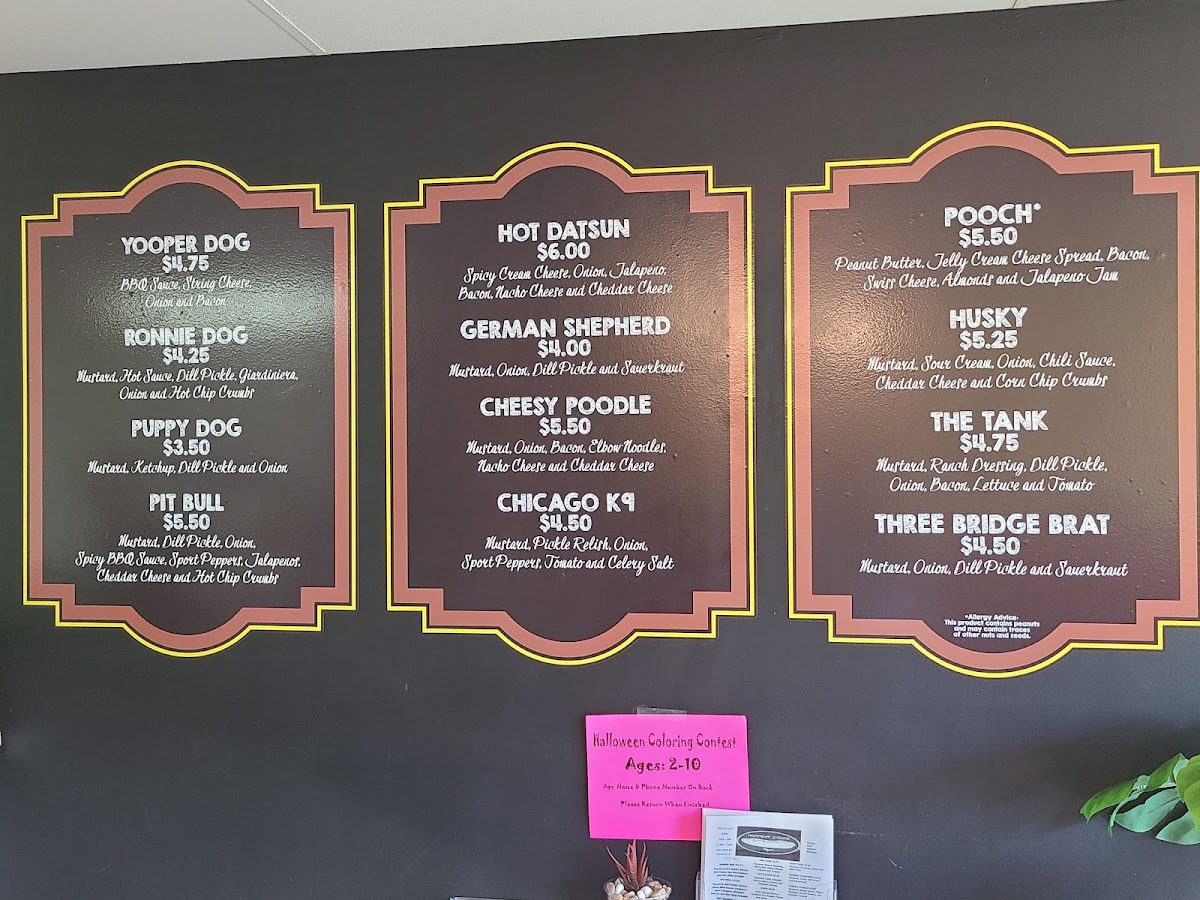 YOOPER DOG
$4.75
BBQ Sauce, String Cheese,
Onion and Bacon
RONNIE DOG
$4.25
Mustard, Hot Sauce, Dill Pickle, Giardiniera,
Onion and Hot Chip Crumbs
PUPPY DOG
$3.50
Mustard, Ketchup, Dill Pickle and Onion
PIT BULL
$5.50
Mustard, Dill Pickle, Onion,
Spicy BBQ Sauce, Sport Peppers, Jalapenos,
Cheddar Cheese and Hot Chip Crumbs
HOT DATSUN
$6.00
Spicy Cream Cheese, Onion, Jalapeno,
Bacon, Nacho Cheese and Cheddar Cheese
GERMAN SHEPHERD
$4.00
Mustard, Onion, Dill Pickle and Sauerkraut
CHEESY POODLE
$5.50
Mustard, Onion, Bacon, Elbow Noodles,
Nacho Cheese and Cheddar Cheese
CHICAGO K9
$4.50
Mustard, Pickle Relish, Onion,
Sport Peppers, Tomato and Celery Salt
POOCH*
$5.50
Peanut Butter, Jelly Cream Cheese Spread, Bacon,
Swiss Cheese, Almonds and Jalapeno Jam
HUSKY
$5.25
Mustard, Sour Cream, Onion, Chili Sauce,
Cheddar Cheese and Corn Chip Crumbs
THE TANK
$4.75
Mustard, Ranch Dressing, Dill Pickle,
Onion, Bacon, Lettuce and Tomato
THREE BRIDGE BRAT
$4.50
Mustard, Onion, Dill Pickle and Sauerkraut
*Allergy Advice*
This product contains peanuts
and may contain traces
of other nuts and seeds.
Halloween Coloring Contest
Ages: 2-10
Age Name & Phone Number On Back
Please Return When Finished